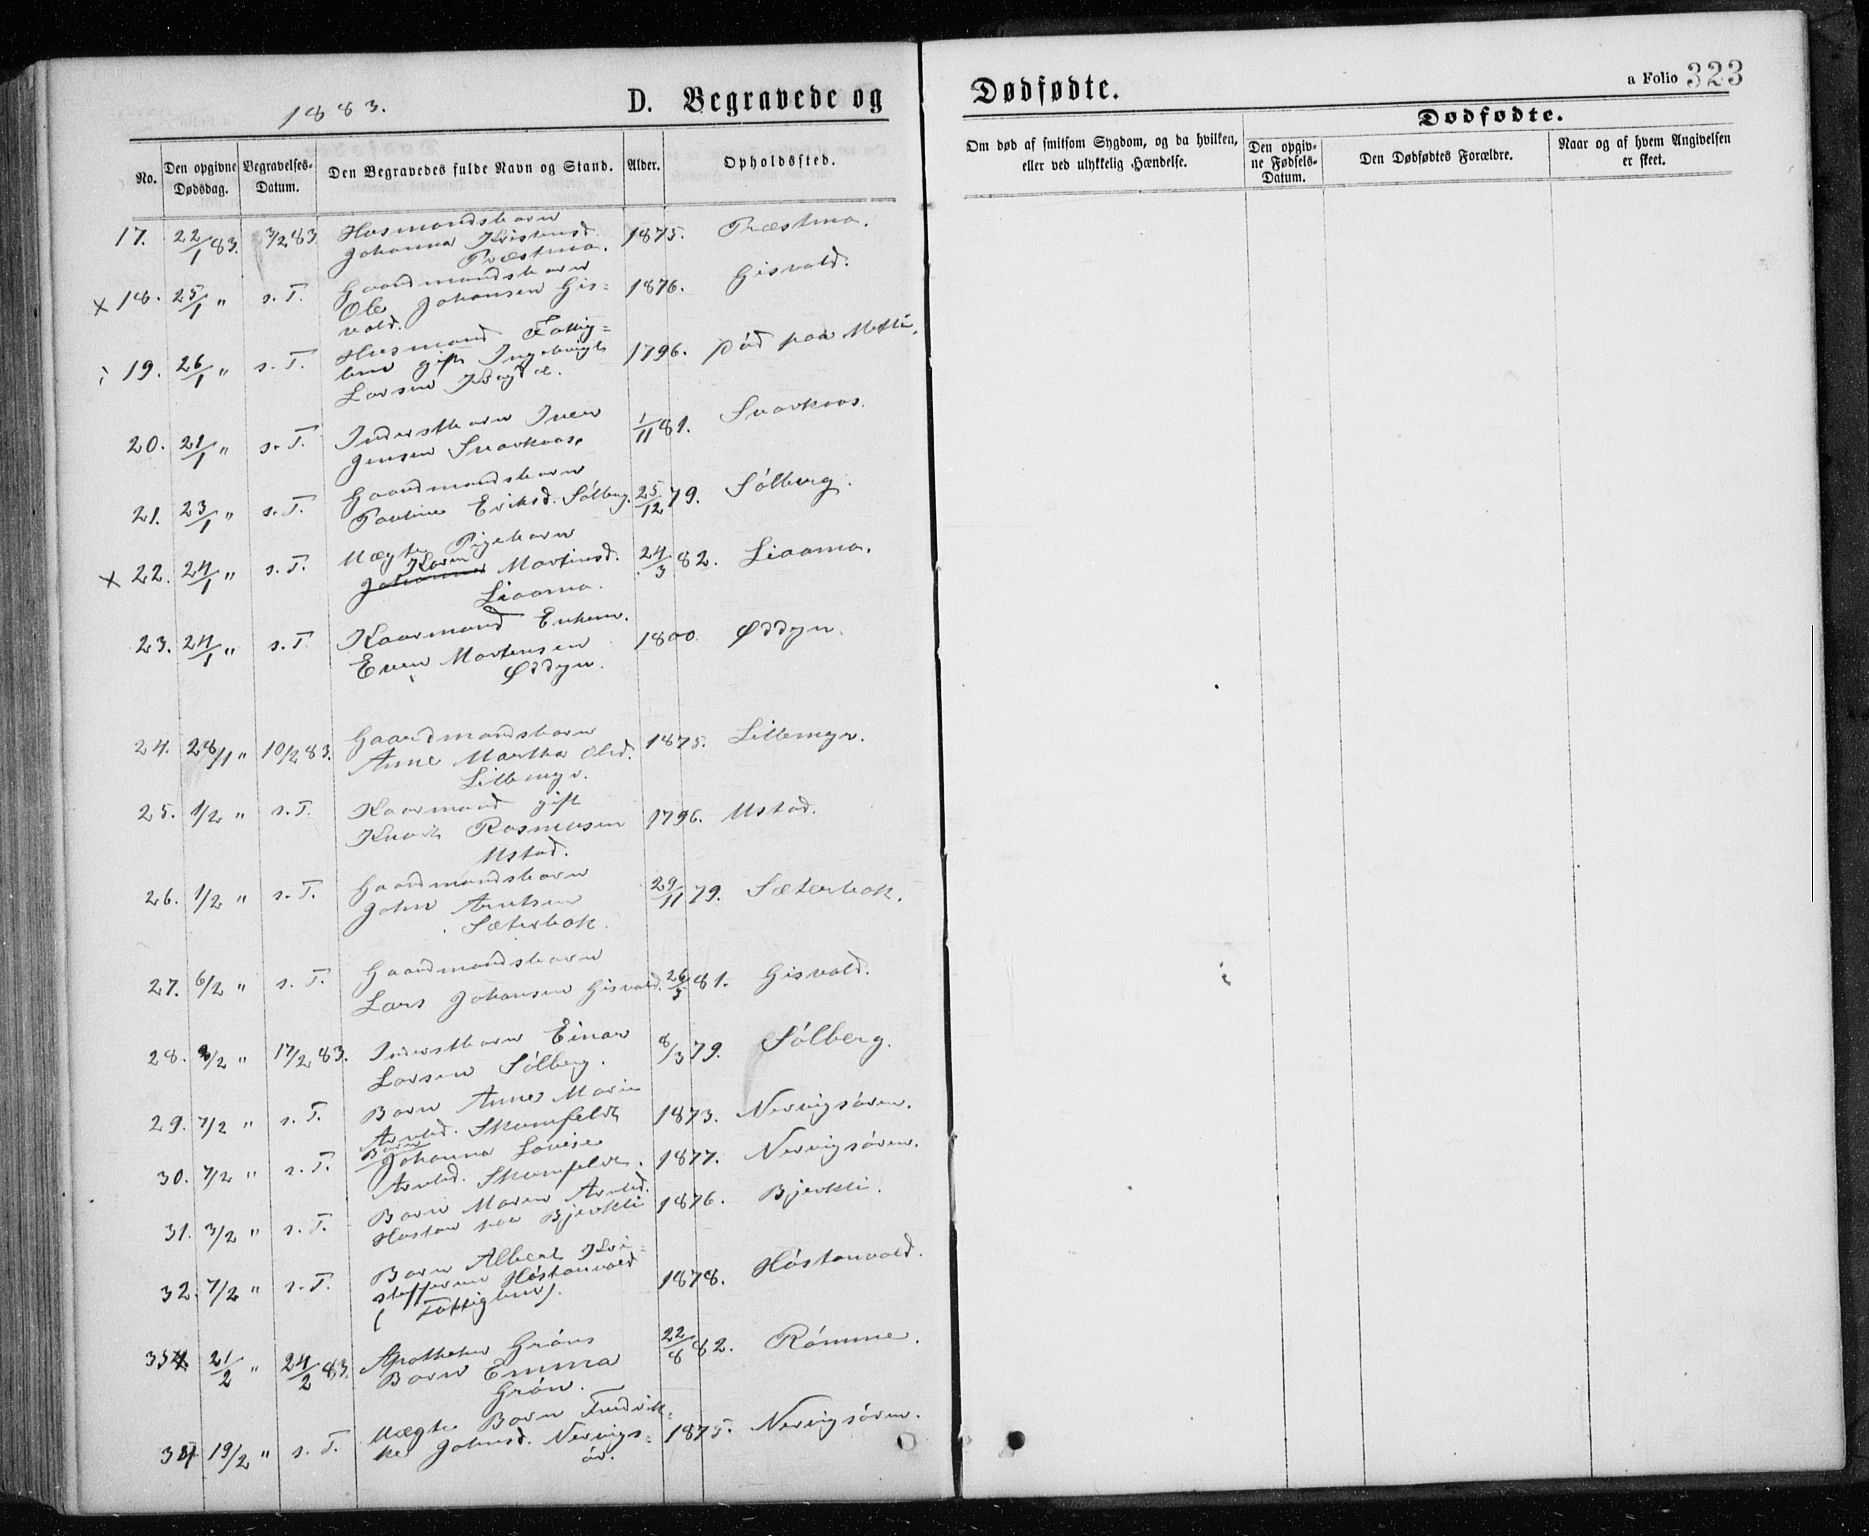 1883.
D. Begravede og
Dødfødte.
a Folio 323
No.
Den opgivne Dødsdag.
Begravelses-Datum.
Den Begravedes fulde Navn og Stand.
Alder.
Opholdssted.
Om død af smitsom Sygdom, og da hvilken,
eller ved ulykkelig Hændelse.
Dødfødte.
Den opgiv-
ne Fødsels-
Datum.
Den Dødfødtes Forældre.
Naar og af hvem Angivelsen
er skeet.
17. 22/1 83. 3/2 83 Husmandsbarn
Johanna Kristensd. 1875. Præstmo.
Præstmo.
x 18. 25/1 " s. T. Gaardmandsbarn
Ole Johansen Gis= 1876. Gisvold.
vold.
19. 26/1 " s. T. Husmand Fattig=
lem gift Ingebrigt 1796. Død paa
Larsen
20. 21/1 " s. T. Inderstbarn Iver 1/11 81. Svarkaas.
Jensen Svarkaas.
21. 23/1 " s. T. Gaardmandsbarn
Pauline Eriksd. Sólberg. 25/12 79. Sólberg.
x 22. 24/1 " s. T. Uægte Pigebarn
Karen
Johanna Martinsd. 24/3 82. Liaamo.
Liaamo.
23. 24/1 " s. T. Kaarmand Enkem.
Even Mortensen 1800. Øddyn.
Øddyn.
24. 28/1 " 10/2 83. Gaardmandsbarn
Anne Martha Olsd. 1875. Lillemyr.
Lillemyr.
25. 1/2 " s. T. Kaarmand gift
Knud Rasmusen 1796. Ustad.
Ustad.
26. 1/2 " s. T. Gaardmandsbarn
John Arntsen 29/11 79. Sæterbak.
Sæterbak.
27. 6/2 " s. T. Gaardmandsbarn
Lars Johansen Gisvold. 26/5 81. Gisvold.
28. 8/2 " 17/2 83. Inderstbarn Einar 8/3 79. Sólberg.
Larsen Sólberg.
29. 7/2 " s. T. Barn Anne Marie 1873. Nervigsøren.
Arntsd. Skamfeldt
30. 7/2 " s. T. Barn
Johanna Lovise 1877. Nervigsøren.
Arntsd. Skamfeldt.
31. 3/2 " s. T. Barn Maren Arntsd. 1876. Bjerkli.
Hostan paa Bjerkli
32. 7/2 " s. T. Barn Albert Kri=
stoffersen Hóstonvold 1878. Hóstonvold.
(Fattiglem).
21/2 " 24/2 83. Apotheker Gróns
Barn Emma 22/8 82. Rómme.
Grón.
19/2 " s. T. Uægte Barn Fredrik=
ke Johnsd. Nervigs= 1875. Nervigsøren.
ør.